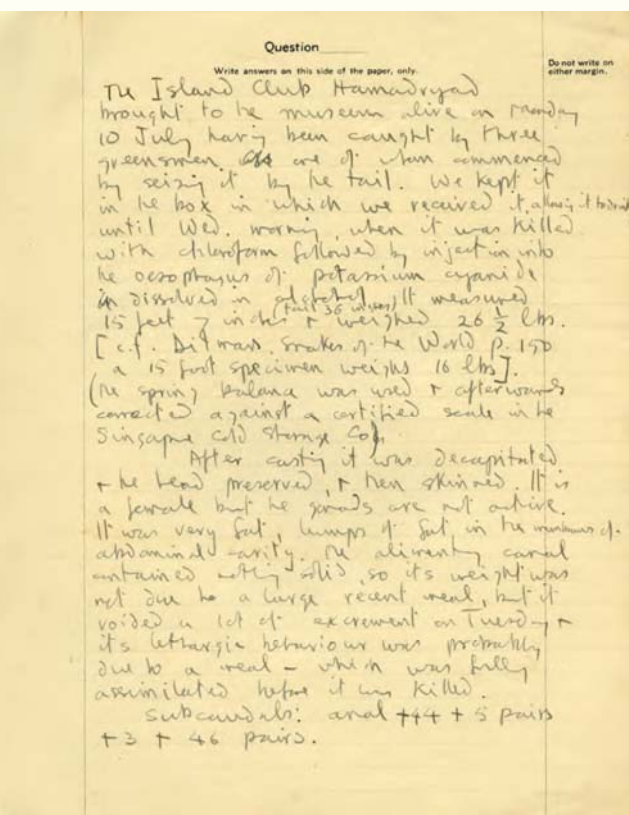 Question
Write answers on this side of the paper, only.
Do not write on
either margin.
The Island Club Hamadryad
brought to the museum alive on Monday
10 July having been caught by three
greensmen one of whom commenced
by seizing it by the tail. We kept it
in the box in which we received it, allowing it to drink
until Wed. morning, when it was killed
with chloroform followed by injection into
the oesophagus of potassium cyanide
dissolved in alcohol. It measured
(tail 36 inches)
15 feet 7 inches + weighed 26 ½ lbs.
[c.f. Ditmars. Snakes of the World p. 150
a 15 foot specimen weighs 16 lbs].
(The spring balance was used + afterwards
corrected against a certified scale in the
Singapore Cold Storage Co).
After casting it was decapitated
+ the head preserved, + then skinned. It is
a female but the gonads are not active.
It was very fat, lumps of fat in the of
abdominal cavity. The alimentary canal
contained nothing solid, so its weight was
not due to a large recent meal, but it
voided a lot of excrement on Tuesday +
its lethargic behaviour was probably
due to a meal - which was fully
assimilated before it was killed.
Subcaudals: anal +44 + 5 pairs
+3 + 46 pairs.